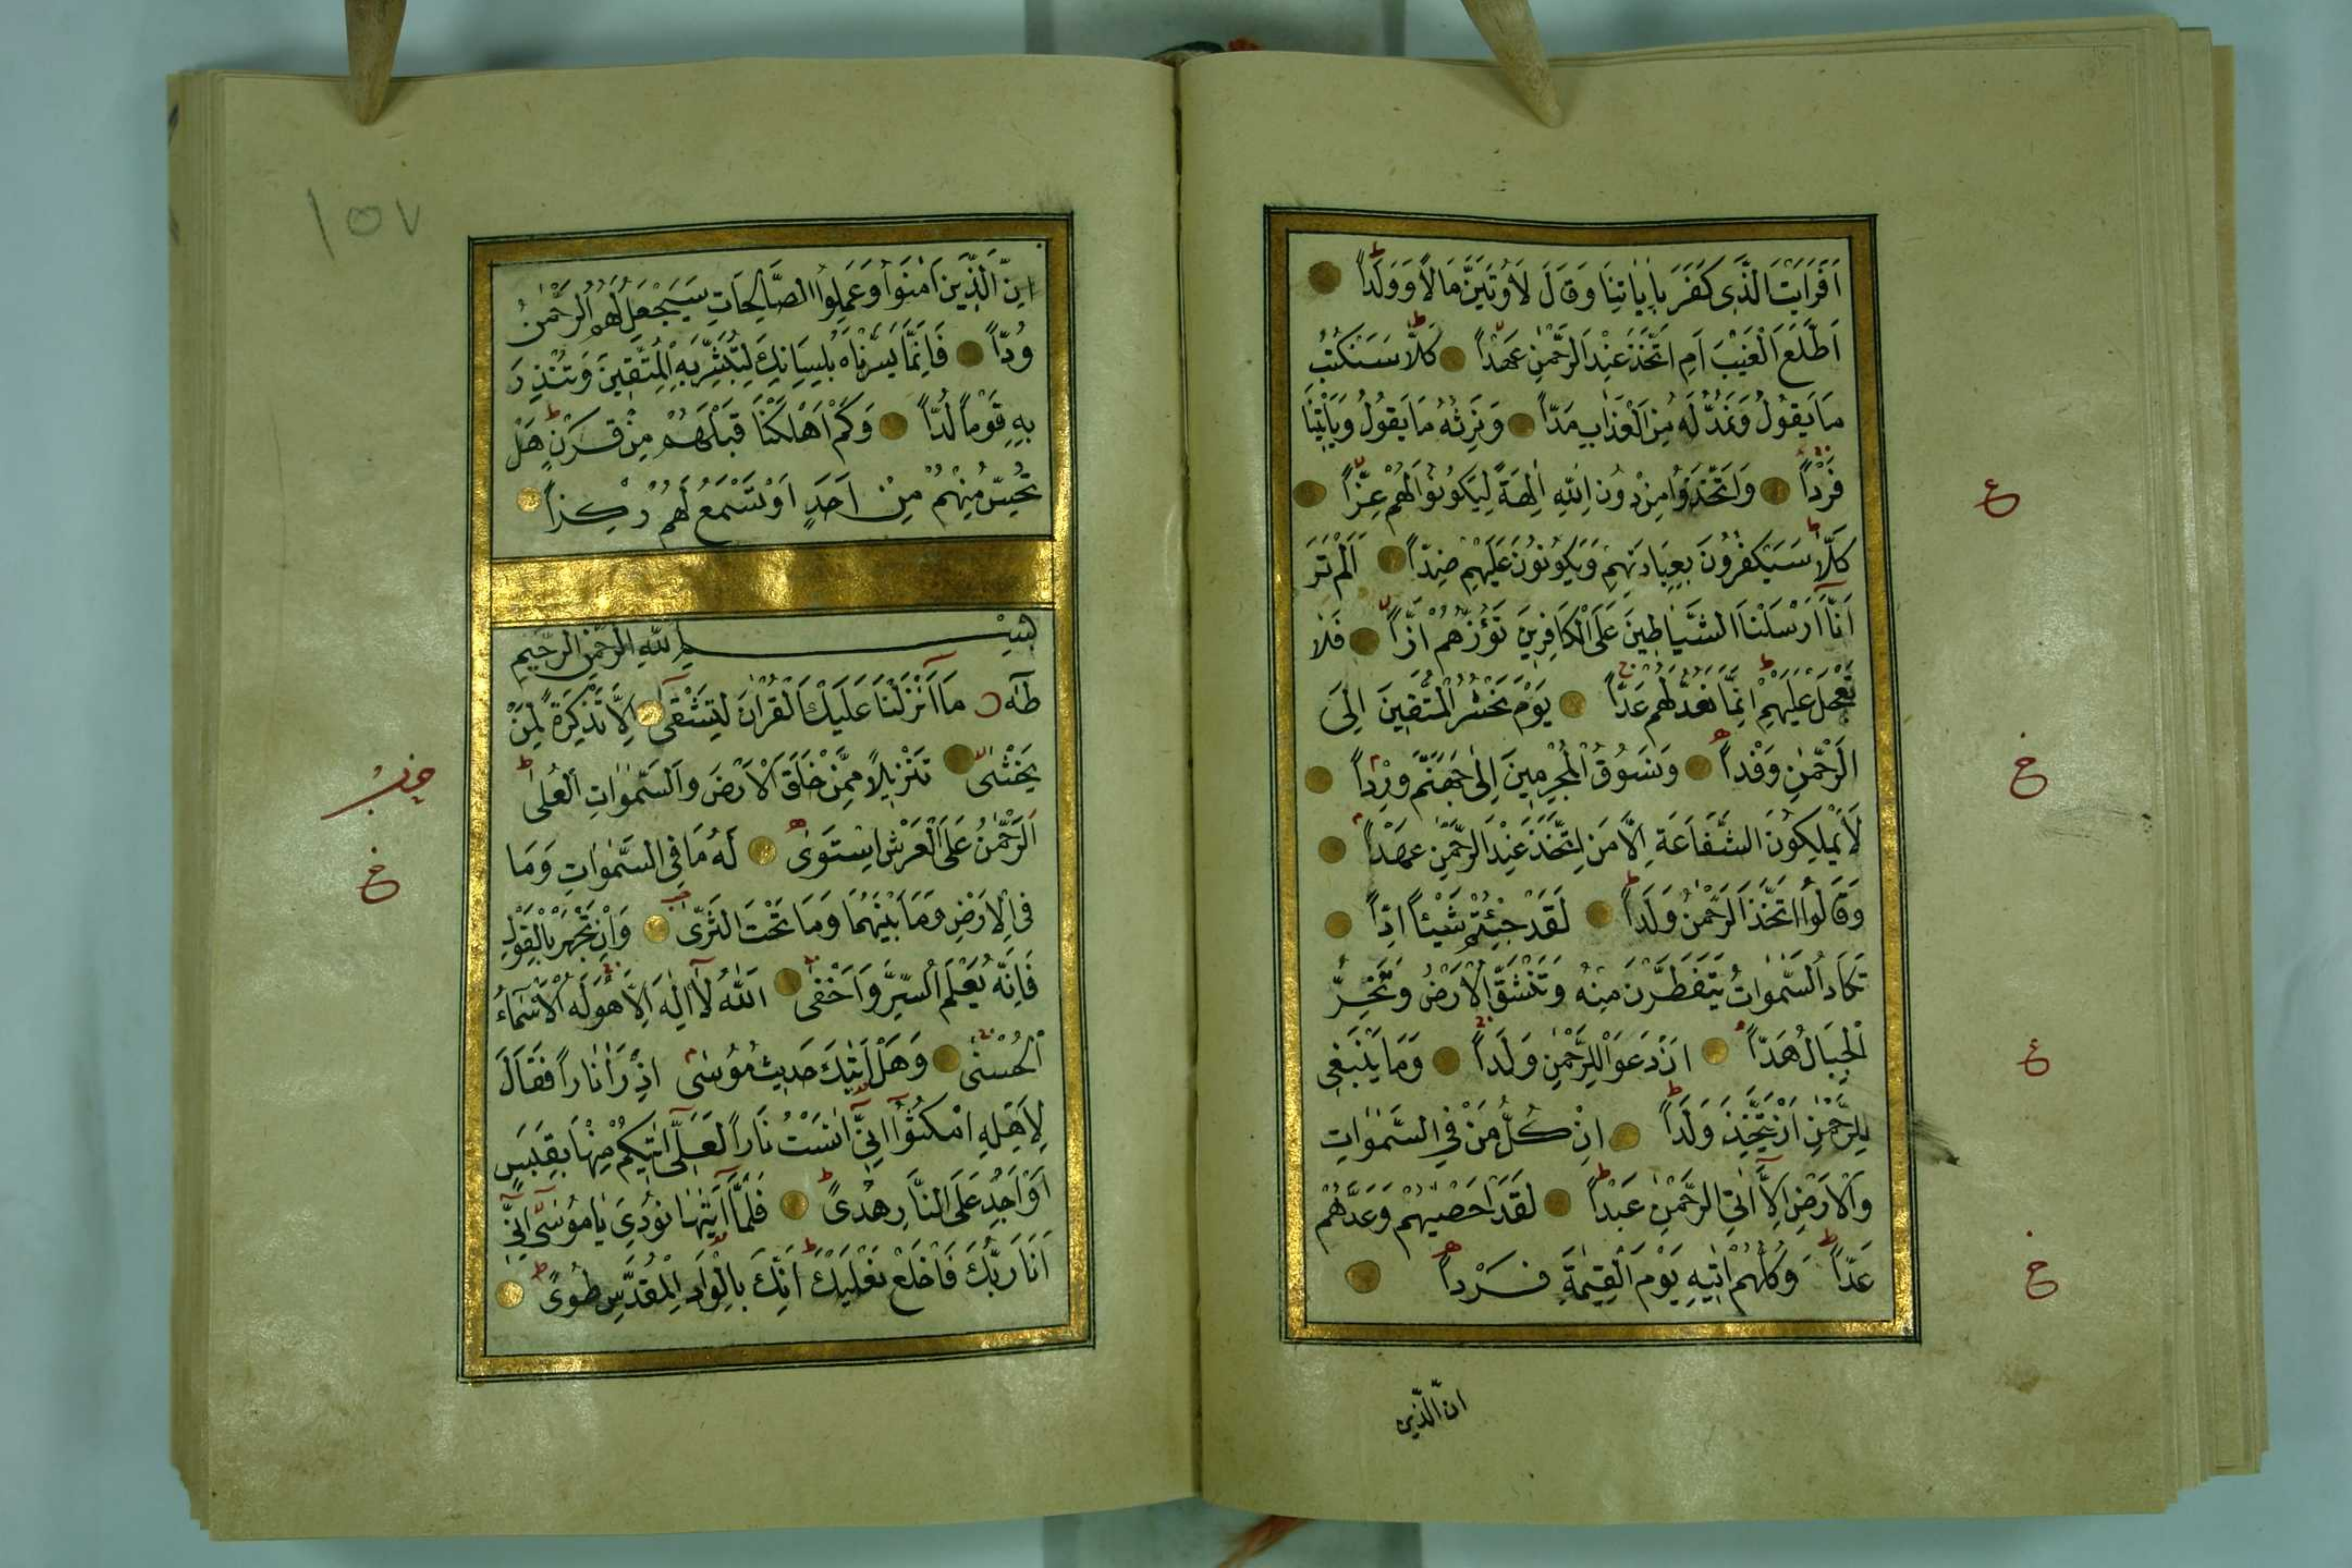 اَفَرَاَيْتَ الَّذٖى كَفَرَ بِاٰيَاتِنَا وَقَالَ لَاُوتَيَنَّ مَالًا وَوَلَداً
اَطَّلَعَ الْغَيْبَ اَمِ اتَّخَذَ عِنْدَ الرَّحْمٰنِ عَهْداً كَلَّا سَنَكْتُبُ
مَا يَقُولُ وَنَمُدُّ لَهُ مِنَ الْعَذَابِ مَدّاً وَنَرِثُهُ مَا يَقُولُ وَيَاْتٖينَا
فَرْداً وَاتَّخَذُوا مِنْ دُونِ اللّٰهِ اٰلِهَةً لِيَكُونُوا لَهُمْ عِزّاً
ع
كَلَّا سَيَكْفُرُونَ بِعِبَادَتِهِمْ وَيَكُونُونَ عَلَيْهِمْ ضِدّاً اَلَمْ تَرَ
اَنَّا اَرْسَلْنَا الشَّيَاطٖينَ عَلَى الْكَافِرٖينَ تَؤُزُّهُمْ اَزّاً فَلَا
تَعْجَلْ عَلَيْهِمْ اِنَّمَا نَعُدُّ لَهُمْ عَدّاً يَوْمَ نَحْشُرُ الْمُتَّقٖينَ اِلَى
الرَّحْمٰنِ وَفْداً وَنَسُوقُ الْمُجْرِمٖينَ اِلٰى جَهَنَّمَ وِرْداً
خ
لَا يَمْلِكُونَ الشَّفَاعَةَ اِلَّا مَنِ اتَّخَذَ عِنْدَ الرَّحْمٰنِ عَهْداً
وَقَالُوا اتَّخَذَ الرَّحْمٰنُ وَلَداً لَقَدْ جِئْتُمْ شَيْئاً اِدّاً
تَكَادُ السَّمٰوَاتُ يَتَفَطَّرْنَ مِنْهُ وَتَنْشَقُّ الْاَرْضُ وَتَخِرُّ
الْجِبَالُ هَدّاً اَنْ دَعَوْا لِلرَّحْمٰنِ وَلَداً وَمَا يَنْبَغٖى
ع
لِلرَّحْمٰنِ اَنْ يَتَّخِذَ وَلَداً اِنْ كُلُّ مَنْ فِى السَّمٰوَاتِ
وَالْاَرْضِ اِلَّا اٰتِى الرَّحْمٰنِ عَبْداً لَقَدْ اَحْصٰيهُمْ وَعَدَّهُمْ
عَدّاً وَكُلُّهُمْ اٰتٖيهِ يَوْمَ الْقِيٰمَةِ فَرْداً
خ
ان الذين
١٥٧
اِنَّ الَّذٖينَ اٰمَنُوا وَعَمِلُوا الصَّالِحَاتِ سَيَجْعَلُ لَهُمُ الرَّحْمٰنُ
وُدّاً فَاِنَّمَا يَسَّرْنَاهُ بِلِسَانِكَ لِتُبَشِّرَ بِهِ الْمُتَّقٖينَ وَتُنْذِرَ
بِهِ قَوْماً لُدّاً وَكَمْ اَهْلَكْنَا قَبْلَهُمْ مِنْ قَرْنٍ هَلْ
تُحِسُّ مِنْهُمْ مِنْ اَحَدٍ اَوْ تَسْمَعُ لَهُمْ رِكْزاً
بِسْمِ اللّٰهِ الرَّحْمٰنِ الرَّحٖيمِ
طٰهٰ مَا اَنْزَلْنَا عَلَيْكَ الْقُرْاٰنَ لِتَشْقٰى اِلَّا تَذْكِرَةً لِمَنْ
يَخْشٰى تَنْزٖيلًا مِمَّنْ خَلَقَ الْاَرْضَ وَالسَّمٰوَاتِ الْعُلٰى
حزب
اَلرَّحْمٰنُ عَلَى الْعَرْشِ اسْتَوٰى لَهُ مَا فِى السَّمٰوَاتِ وَمَا
خ
فِى الْاَرْضِ وَمَا بَيْنَهُمَا وَمَا تَحْتَ الثَّرٰى وَاِنْ تَجْهَرْ بِالْقَوْلِ
فَاِنَّهُ يَعْلَمُ السِّرَّ وَاَخْفٰى اَللّٰهُ لَا اِلٰهَ اِلَّا هُوَ لَهُ الْاَسْمَاءُ
الْحُسْنٰى وَهَلْ اَتٰيكَ حَدٖيثُ مُوسٰى اِذْ رَاٰ نَاراً فَقَالَ
لِاَهْلِهِ امْكُثُوا اِنّٖى اٰنَسْتُ نَاراً لَعَلّٖى اٰتٖيكُمْ مِنْهَا بِقَبَسٍ
اَوْ اَجِدُ عَلَى النَّارِ هُدًى فَلَمَّا اَتٰيهَا نُودِىَ يَا مُوسٰى اِنّٖى
اَنَا رَبُّكَ فَاخْلَعْ نَعْلَيْكَ اِنَّكَ بِالْوَادِ الْمُقَدَّسِ طُوًى